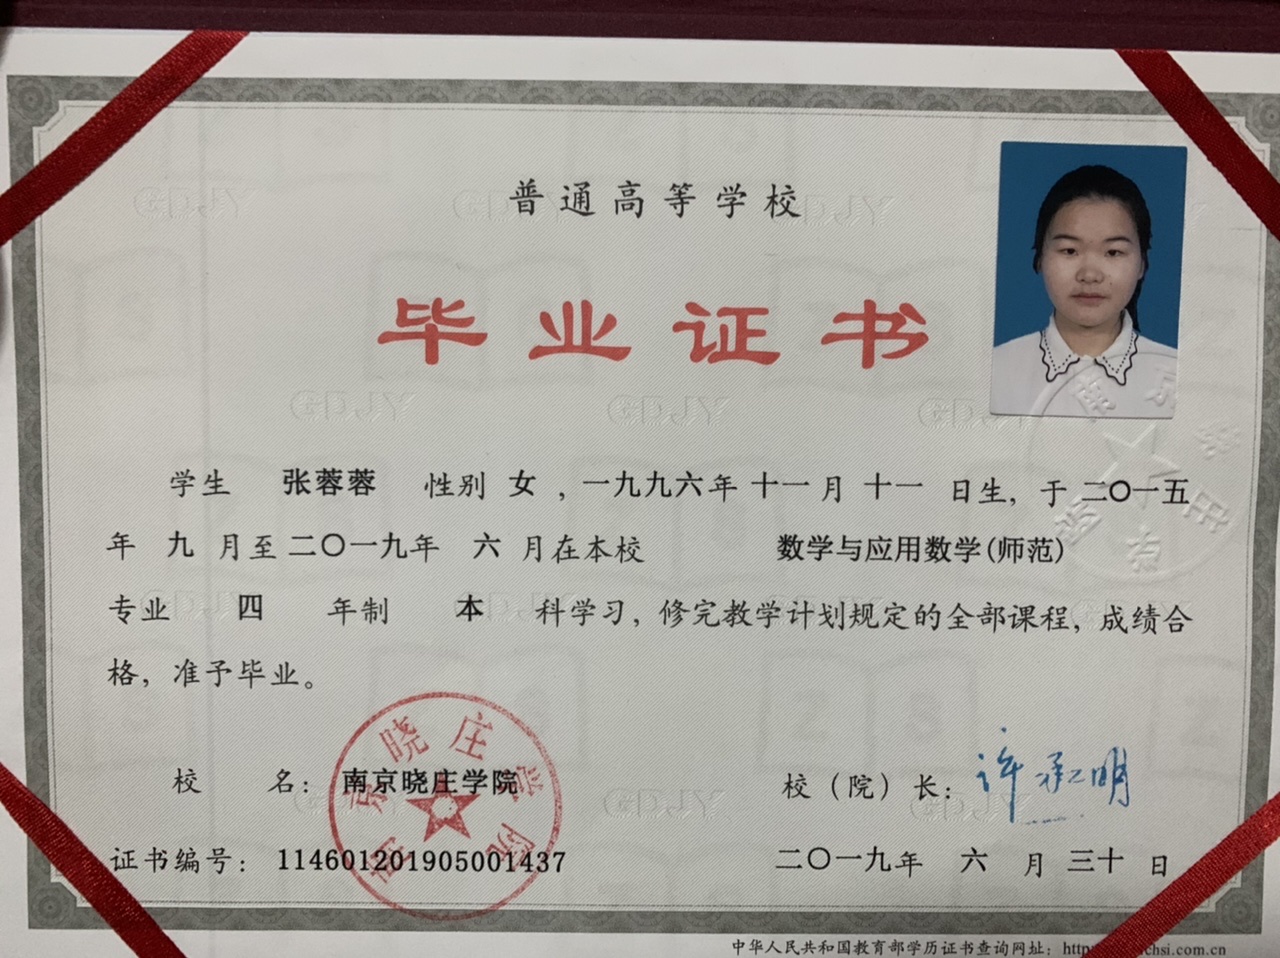 普通高等学校
毕业证书
学生 张蓉蓉 性别 女 ，一九九六年 十一 月 十一 日生，于 二〇一五
年 九 月至 二〇一九年 六 月在本校 数学与应用数学(师范)
专业 四 年制 本 科学习，修完教学计划规定的全部课程，成绩合
格，准予毕业。
校 名：南京晓庄学院
校（院）长：许承明
证书编号：114601201905001437
二〇一九年 六 月 三十 日
南京晓庄学院
GDJY
中华人民共和国教育部学历证书查询网址：http chsi.com.cn